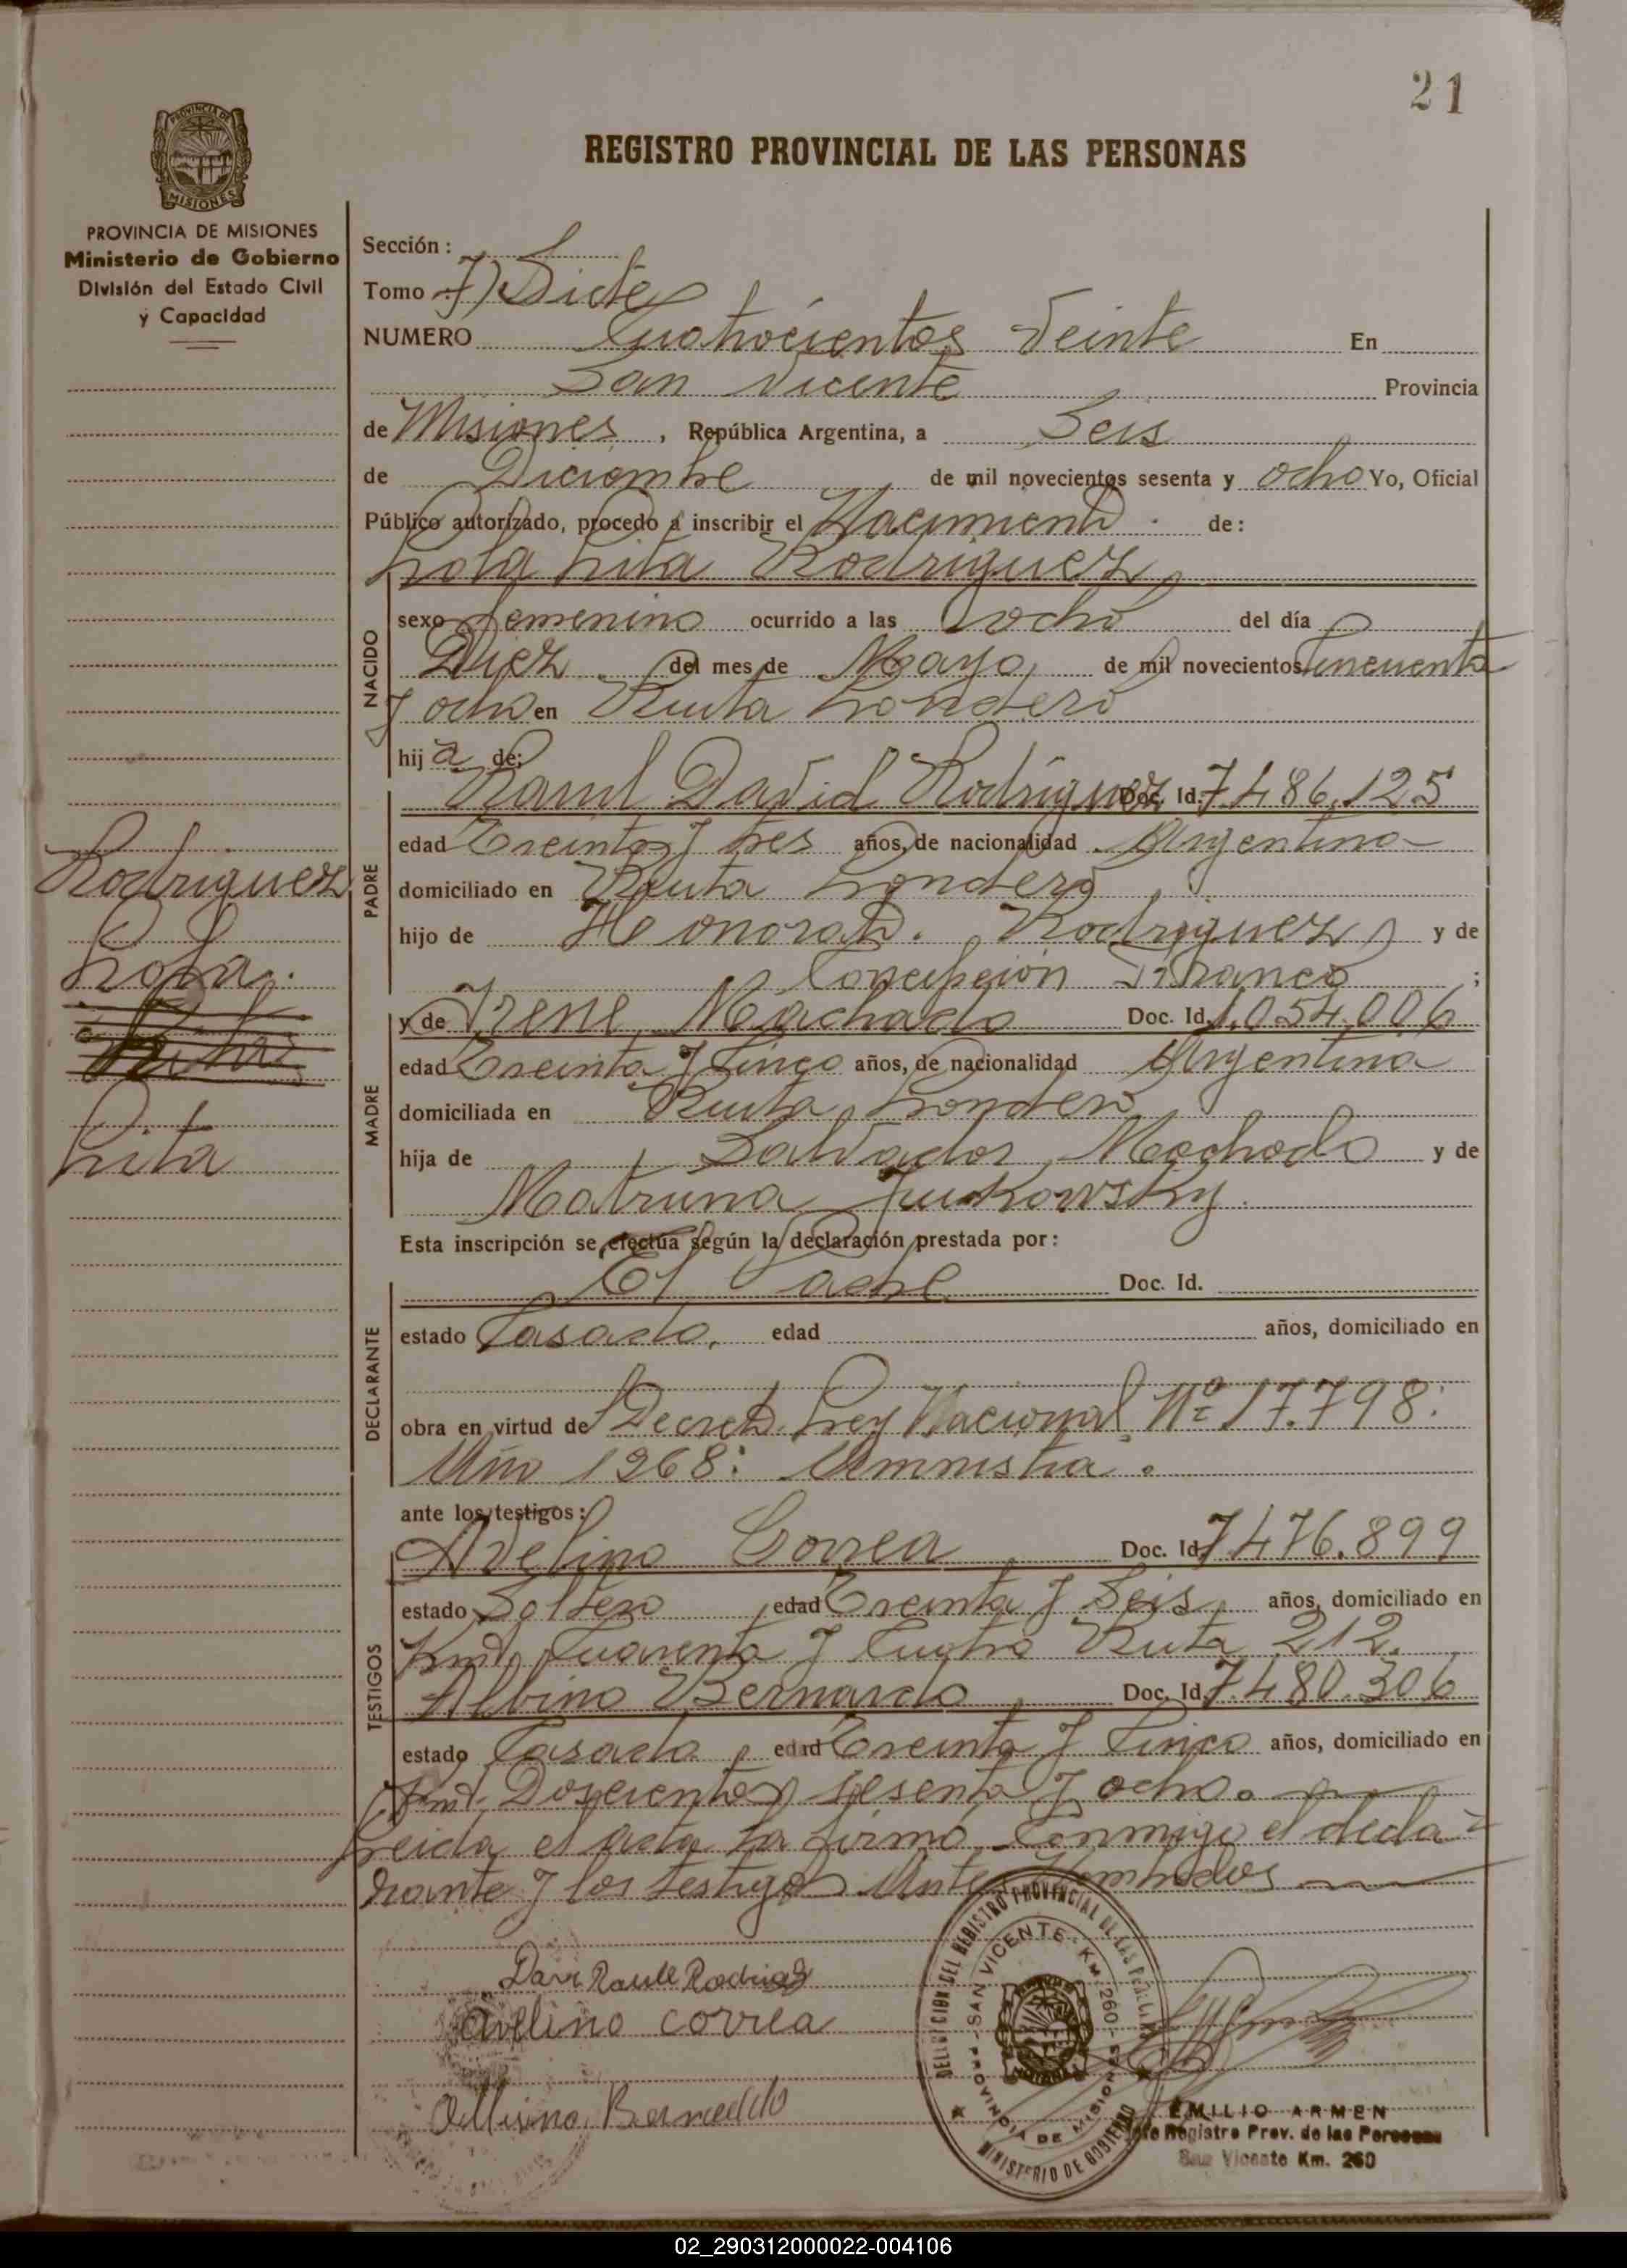 21
REGISTRO PROVINCIAL DE LAS PERSONAS
PROVINCIA DE MISIONES
PROVINCIA DE MISIONES
Ministerio de Gobierno
División del Estado Civil
y Capacidad
Sección :
Tomo 7) Siete
NUMERO Cuatrocientos Veinte En
San Vicente Provincia
de Misiones, República Argentina, a Seis
de Diciembre de mil novecientos sesenta y ocho Yo, Oficial
Público autorizado, procedo a inscribir el Nacimiento de:
Lola Lita Rodriguez
NACIDO
sexo femenino ocurrido a las ocho del día
Diez del mes de Mayo de mil novecientos Cincuenta
y ocho en Ruta Londero
hija de:
Raul David Rodriguez Doc. Id. 7.486.125
PADRE
edad Treinta y tres años, de nacionalidad Argentino
domiciliado en Ruta Londero
hijo de Honorato Rodriguez y de
Concepción Franco ;
Rodriguez
Lola.
Lita
MADRE
y de Irene Machado Doc. Id. 1.054.006
edad Treinta y Cinco años, de nacionalidad Argentina
domiciliada en Ruta Londero
hija de Salvador Machado y de
Matruna Jukowsky.
Esta inscripción se efectúa según la declaración prestada por :
DECLARANTE
El Padre Doc. Id.
estado Casado, edad años, domiciliado en
obra en virtud de Decreto Ley Nacional Nº 17.798:
Año 1968: Amnistia.
ante los testigos :
TESTIGOS
Avelino Correa Doc. Id. 7476.899
estado Soltero edad Treinta y Seis años, domiciliado en
Km. Cuarenta y Cuatro Ruta 212.
Albino Bernardo Doc. Id. 7.480.306
estado Casado, edad Treinta y Cinco años, domiciliado en
Km. Doscientos sesenta y ocho.
Leida el acta La firma Conmigo el decla-
rante y los testigos Antes Nombrados
Raull Rodriguez
avelino correa
Bernardo
DELEGACION DEL REGISTRO PROVINCIAL DE LAS PERSONAS
SAN VICENTE - KM. 260 -
PROVINCIA DE MISIONES
MINISTERIO DE GOBIERNO
EMILIO ARMEN
Jefe Registro Prov. de las Personas
San Vicente Km. 260
02_290312000022-004106